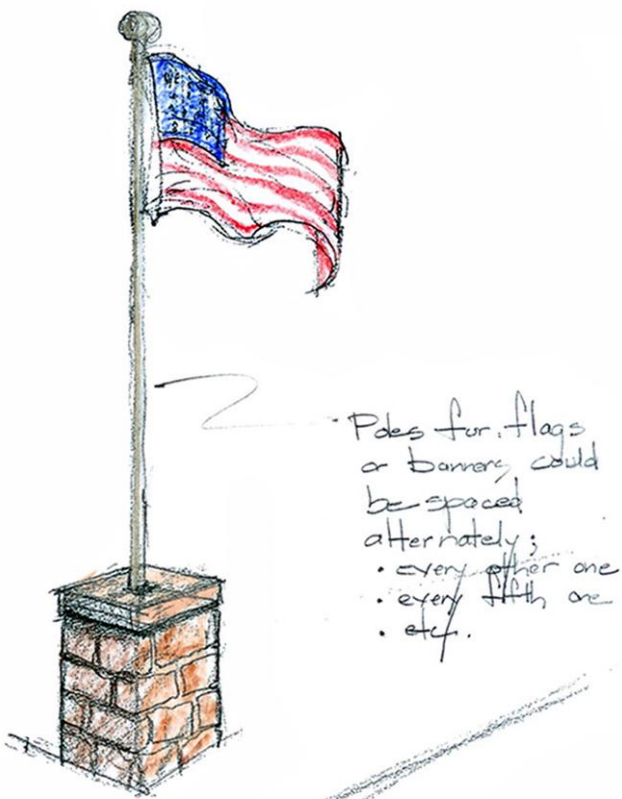 Poles for flags
or banners could
be spaced
alternately;
• every other one
• every fifth one
• etc.